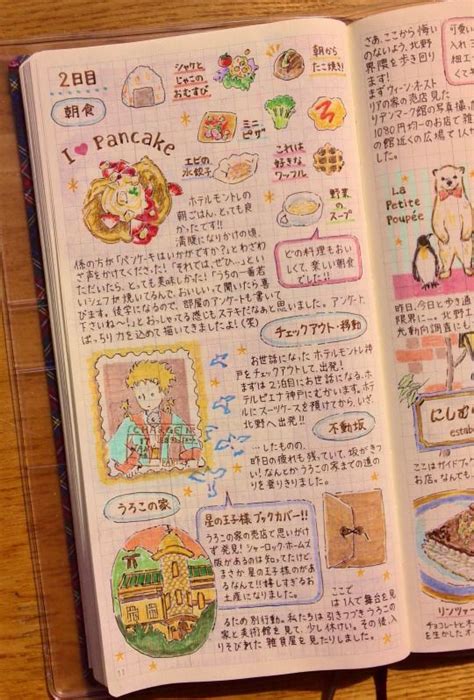 2日目
朝食
シャケと
じゃこの
おむすび
朝から
たこ焼き!
ミニ
ピザ
エビの
水餃子
これは
好きな
ワッフル
野菜
のスープ
I ♥ Pancake
ホテルモントレの
朝ごはん、とっても良
かったです!!
満腹になりかけの頃、
係の方が「パンケーキはいかがですか?」とわざわ
ざ声をかけてくださった!「それでは、ぜひ…」とい
ただいたら、とっても美味しかった!「うちの一番若
いシェフが焼いてるんで、おいしいって聞いたら喜
びます。後学になるので、部屋のアンケートも書いて
下さいね〜!」とおっしゃてる感じもステキだなぁと思いました。アンケート、
ばっちり力を込めて描いてきましたよ!(笑)
どの料理もおい
しくて、楽しい朝食
でした!!
チェックアウト・移動
お世話になったホテルモントレ神
戸をチェックアウトして、出発!
まずは2泊目にお世話になる、ホ
テルピエナ神戸にむかいます。ホテ
ルにスーツケースを預けてから、いざ、
北野へ出発!!
不動坂
…したものの、
昨日の疲れも残っていて、坂がきつ
い!なんとかうろこの家までの道の
りを登りきりました。
うろこの家
星の王子様ブックカバー!!
うろこの家の売店で思いがけ
ず発見!シャーロック・ホームズ
版があるのは知ってたけど
まさか星の王子様のがあ
るなんて!!嬉しすぎるお
土産になりました。
ここで
は1人で舞台を見
るため別行動。私たちは引きつづきうろこの
家と美術館を見て、少し休けい。その後、入
りそびれた雑貨屋を見たりしました。
11
さあ、ここから悔い
のないよう、北野
界隈を歩き回り
ます!
まずウィーン・オースト
リアの家の売店見た
りデンマーク館の写真撮っ
1080円均一のお店で雑
館近くの広場で1人
した。
可愛い
入れ
La
Petite
Poupée
昨日、今日と歩き過
限界に…。北
光動向調査に
にしむ
estab
ここはガイド
お店。なんで
リンツァ
チョコレートと
を生かした